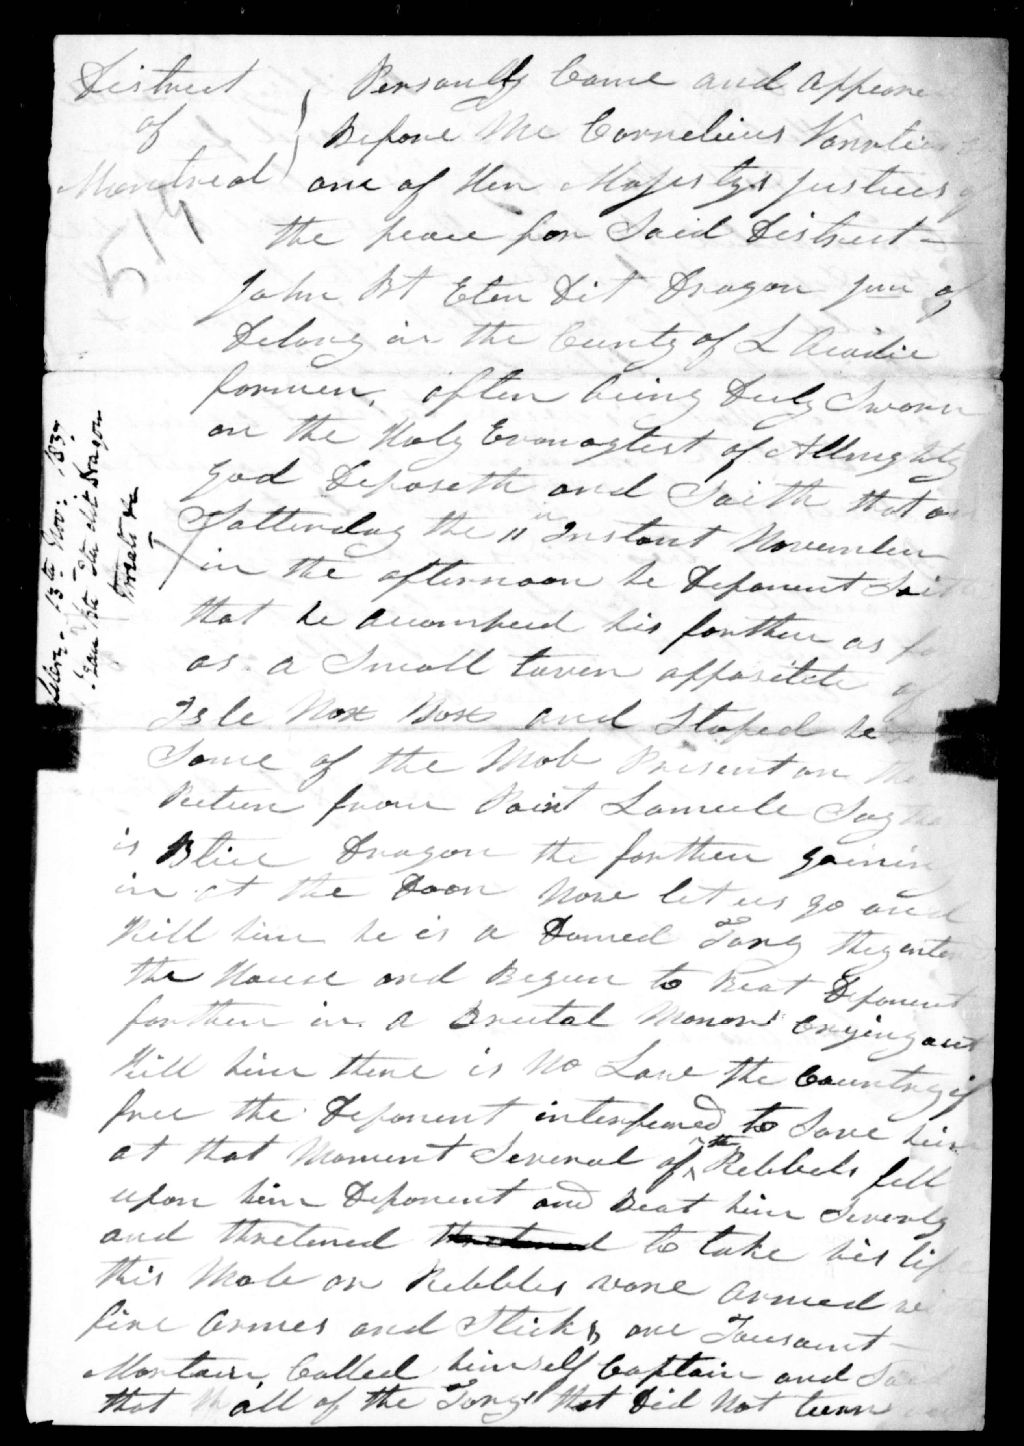 District Personally Came and Appeare
of Before Me Cornelius
Montreal one of Her Majestys justices of
the peace for Said District -
514
John Bt Eten Dit Dragon Junr of
Delong in the County of L Acadie
formen, after being Duly Sworn
on the Holy Evanaglest of Allmighty
God Deposeth and Saith that on
Satterday the 11th Instant November
in the afternoon he Deponent Sai
that he acumpeed his forther as f
as a Small tavern appasitete of
Isle Nox Box and Stoped he
Some of the Mob Present on the
Return from Point Lameule Say
is Blue Dragon the forther goining
in at the Door Now let us go and
Kill him he is a Damed Tory they enter
the House and Begun to Beat Deponent
forther in a Brutal Manor Crying out
Kill him there is No Law the Country is
free the Deponent interfeared to Save him
at that Moment Several of the Rebbels fell
upon him Deponent and Beat him Severly
and thretened to take his life
this Mob or Rebbles ware armed wi
fire Armes and Sticks one Tousaint
Mortain Called himself Captain and Sa
that all of the Torys that Did Not turn
13th Nov: 1837
Jean Bte Ete dit Dragon